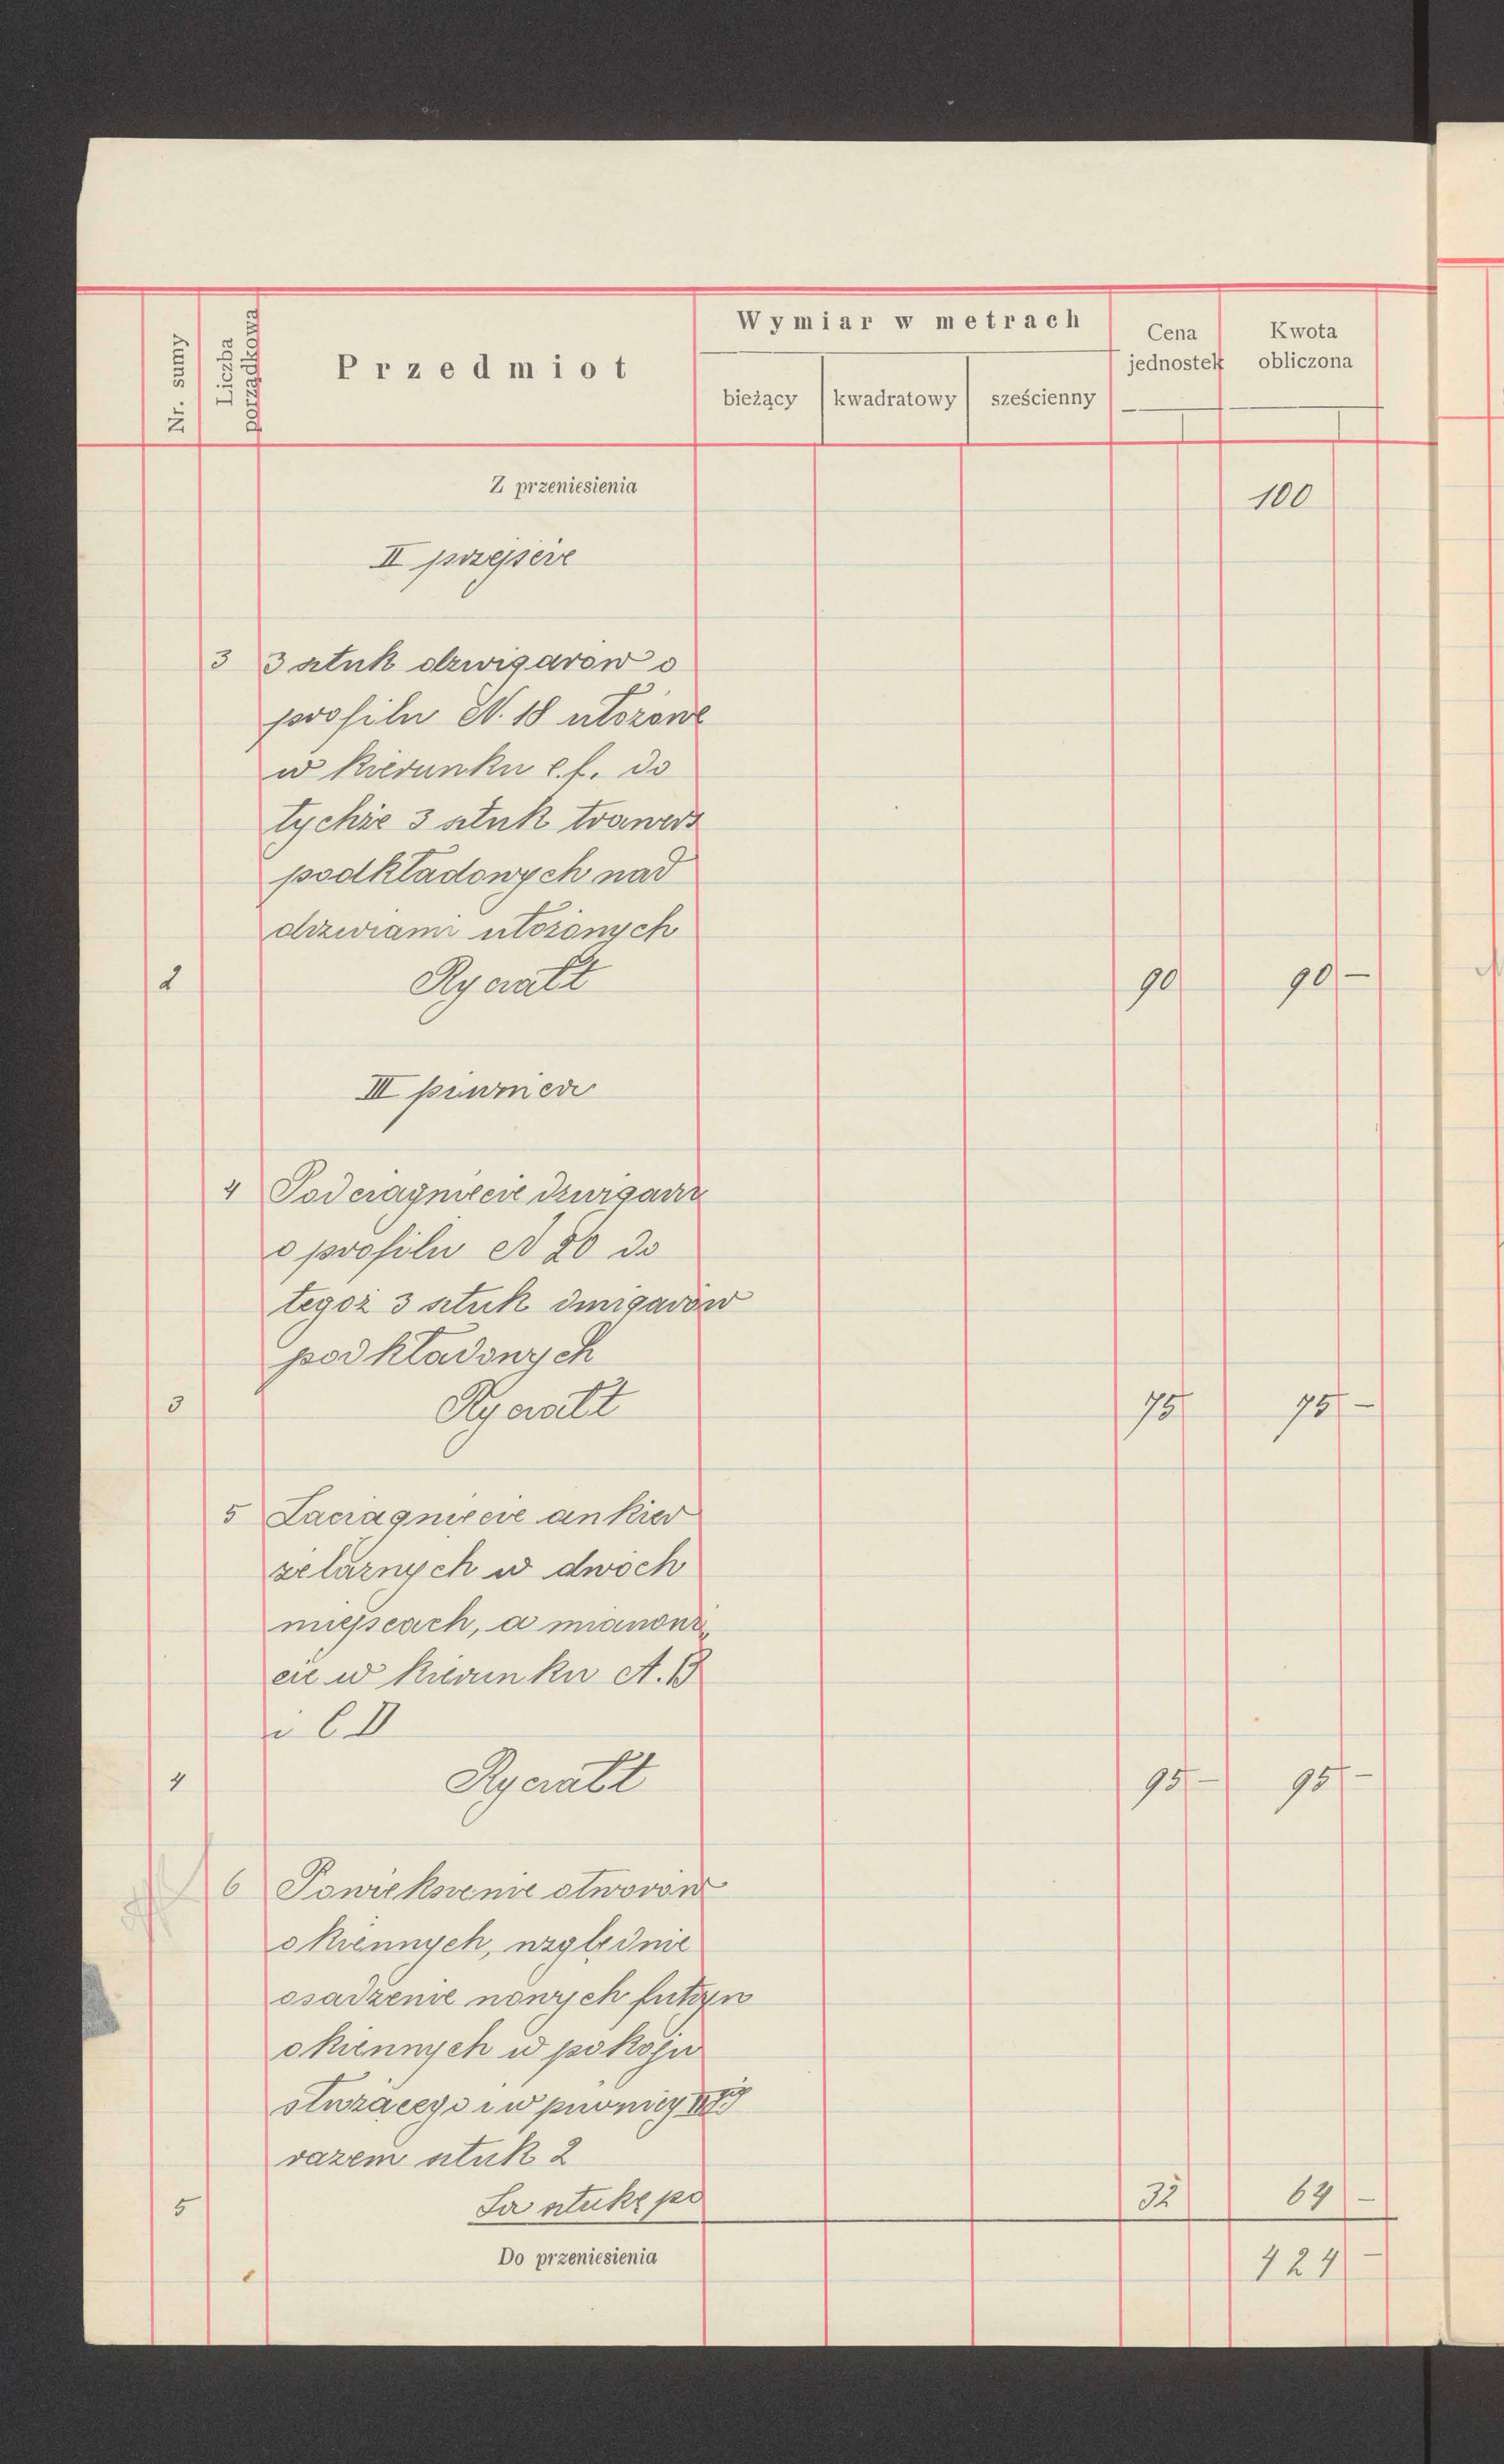 Nr. sumy
Liczba porządkowa
Przedmiot
Wymiar w metrach
bieżący kwadratowy sześcienny
Cena jednostek
Kwota obliczona
Z przeniesienia 100
II przejście
3 3 sztuk dźwigarów o
profilu N. 18 ułożone
w kierunku e.f. do
tychże 3 sztuk trawers
podkładowych nad
drzwiami ułożonych
2 Ryczałt 90 90 -
III piwnice
4 Podciągnięcie dźwigara
o profilu N 20 do
tegoż 3 sztuk dźwigarów
podkładowych
3 Ryczałt 75 75 -
5 Zaciągnięcie ankier
żelaznych w dwóch
miejscach, a mianowi„
cie w kierunku A. B
i C D
4 Ryczałt 95 - 95 -
6 Powiększenie otworów
okiennych, względnie
osadzenie nowych futryn
okiennych w pokoju
służącego i w piwnicy
razem sztuk 2
5 Za sztukę po 32 64 -
Do przeniesienia 424 -